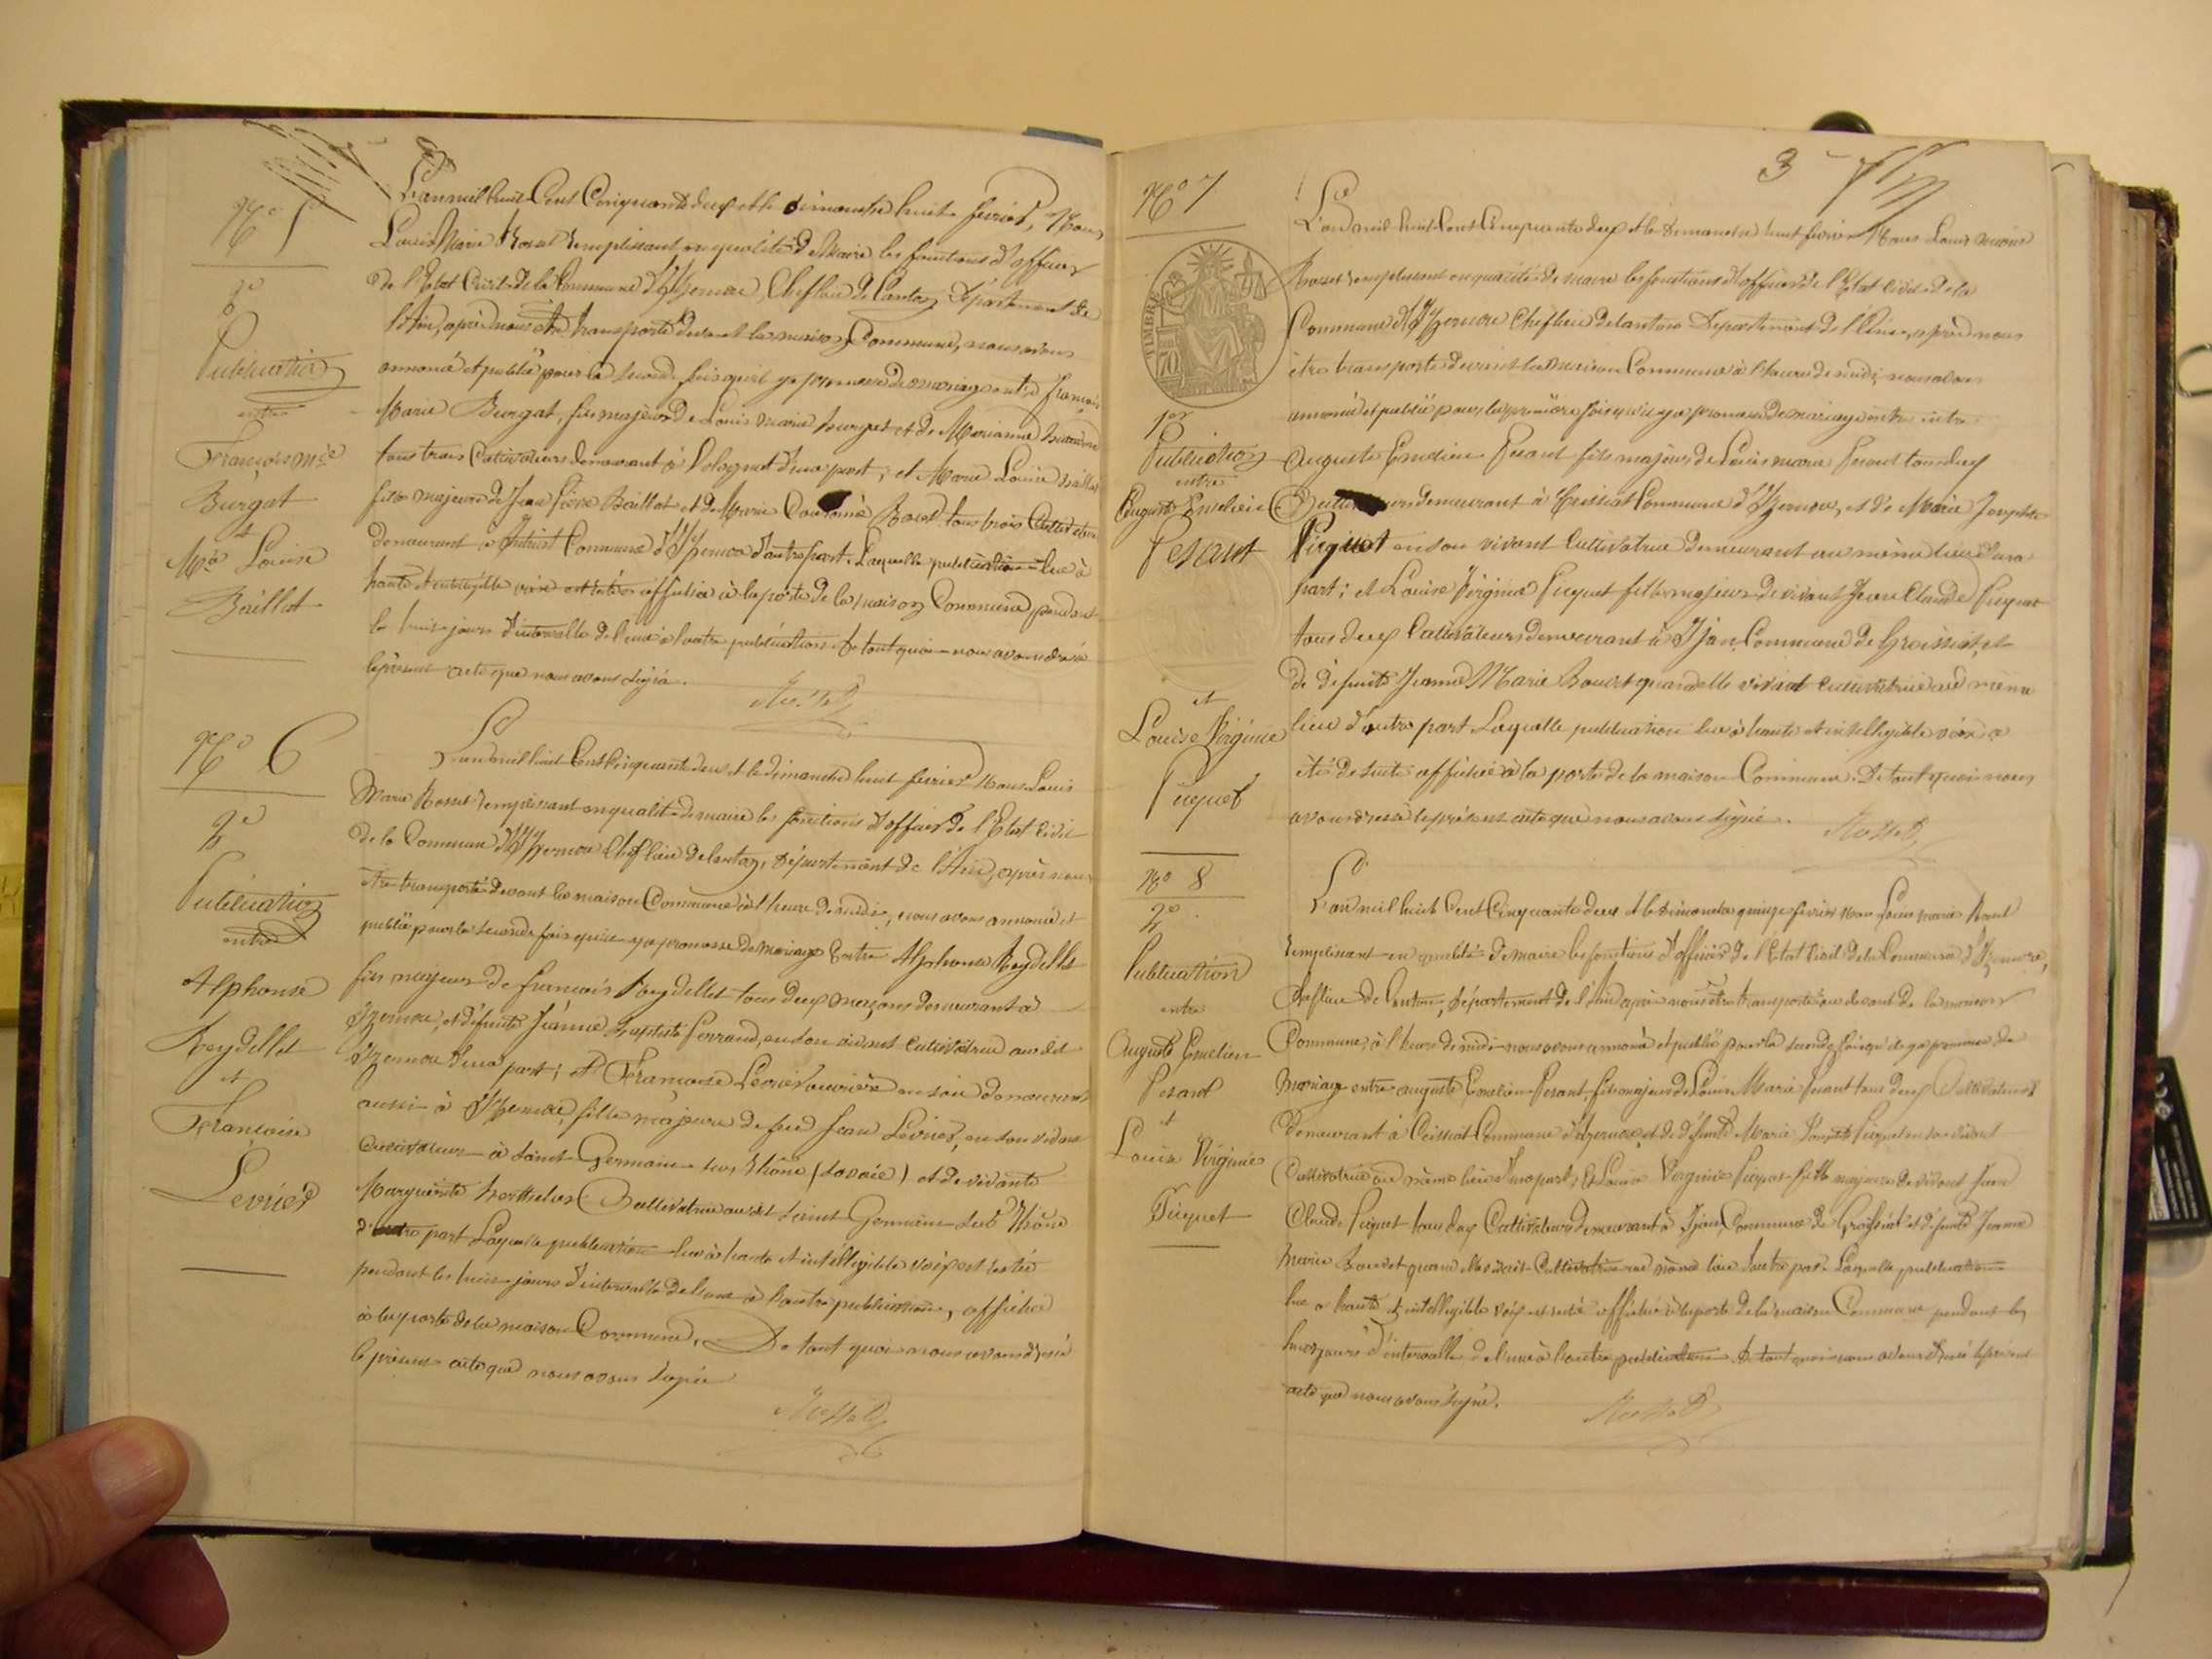 N° 5
2e
Publication
entre
François Mie
Burgat
et
Mie Louise
Baillat
L'an mil huit Cent Cinquante deux et le dimanche huit fevrier, Nous
Louis Marie Rosset remplissant en qualité de Maire les fonctions d'officier
de l'Etat Civil de la Commune d'Izernore Chef lieu de Canton Département de
l'Ain, après nous être transporté devant la maison Commune, nous avons
annoncé et publié pour la seconde fois qu'il y a promesse de mariage entre François
Marie Burgat, fils majeur de Louis marie burgat et de Marianne
tous trois Cultivateurs demeurant à d'une part ; et Marie Louise Baillat
fille majeure de Jean Baillat et de Marie tous trois Cultivateurs
demeurant à Commune d'Izernore d'autre part. Laquelle publication lue à
haute et intelligible voix est restée affichée à la porte de la maison Commune pendant
les huit jours d'intervalle de l'une à l'autre publication. De tout quoi nous avons dressé
le présent acte que nous avons signé.
Rosset
N° 6
2e
Publication
entre
Alphonse
Reydellet
et
Françoise
Levrier
L'an mil huit Cent Cinquante deux et le dimanche huit fevrier Nous Louis
Marie Rosset remplissant en qualité de maire les fonctions d'officier de l'Etat Civil
de la Commune d'Izernore Chef lieu de Canton, Département de l'Ain, après nous
être transporté devant la maison Commune à l'heure de midi, nous avons annoncé et
publié pour la seconde fois qu'il y a promesse de mariage Entre Alphonse Reydellet
fils majeur de françois Reydellet tous deux maçons demeurant à
Izernore, et défunte Jeanne baptiste ferrand, en son vivant cultivatrice au dit
Izernore d'une part ; Et Francoise Levrier ouvrière en soie demeurant
aussi à Izernore, fille majeure de feu Jean Levrier, en son vivant
Cultivateur à Saint Germain sur Rhône (Savoie) et de vivante
Marguerite Berthelon Cultivatrice au dit Saint Germain sur Rhône
d'autre part Laquelle publication lue à haute et intelligible voix est restée
pendant les huit jours d'intervalle de l'une à l'autre publication, affichée
à la porte de la maison Commune, De tout quoi nous avons dressé
le présent acte que nous avons signé
Rosset
3
N° 7
TIMBRE
70
1re
Publication
entre
Auguste Emelien
Pesant
et
Louise Virginie
Piquet
L'an mil huit Cent Cinquante deux et le Dimanche huit fevrier Nous Louis marie
Rosset remplissant en qualité de maire les fonctions d'officier de l'Etat Civil de la
Commune d'Izernore Chef lieu de Canton Département de l'Ain, après nous
être transporté devant la maison Commune à l'heure de midi, nous avons
annoncé et publié pour la première fois qu'il y a promesse de mariage entre entre
Auguste Emelien Pesant fils majeur de Louis marie Pesant tous deux
Cultivateurs demeurant à Ceissiat Commune d'Izernore, et de Marie Josephte
Piquet en son vivant Cultivatrice demeurant au même lieu d'une
part ; et Louise Virginie Piquet fille majeure de vivant Jean Claude Piquet
tous deux Cultivateurs demeurant à Ijean Commune de Groissiat, et
de défunte Jeanne Marie Bouvet quand elle vivait cultivatrice au même
lieu d'autre part Laquelle publication lue à haute et intelligible voix a
été de suite affichée à la porte de la maison Commune. De tout quoi nous
avons dressé le présent acte que nous avons signé.
Rosset
N° 8
2e
Publication
entre
Auguste Emelien
Pesant
et
Louise Virginie
Piquet
L'an mil huit Cent Cinquante deux et le Dimanche quinze fevrier Nous Louis marie Rosset
remplissant en qualité de maire les fonctions d'officier de l'Etat Civil de la Commune d'Izernore,
Chef lieu de Canton, Département de l'Ain après nous être transporté au devant de la maison
Commune, à l'heure de midi nous avons annoncé et publié pour la seconde fois qu'il y a promesse de
Mariage entre auguste Emelien Pesant fils majeur de Louis Marie Pesant tous deux Cultivateurs
demeurant à Ceissiat Commune d'Izernore, et de défunte Marie Josephte Piquet en son vivant
Cultivatrice au même lieu d'une part, Et Louise Virginie Piquet fille majeure de vivant Jean
Claude Piquet tous deux Cultivateurs demeurant à Ijean Commune de Groissiat et défunte Jeanne
Marie Bouvet quand elle vivait Cultivatrice au même lieu d'autre part. Laquelle publication
lue à haute et intelligible voix est restée affichée à la porte de la maison Commune pendant les
huit jours d'intervalle de l'une à l'autre publication De tout quoi nous avons dressé le présent
acte que nous avons signé.
Rosset